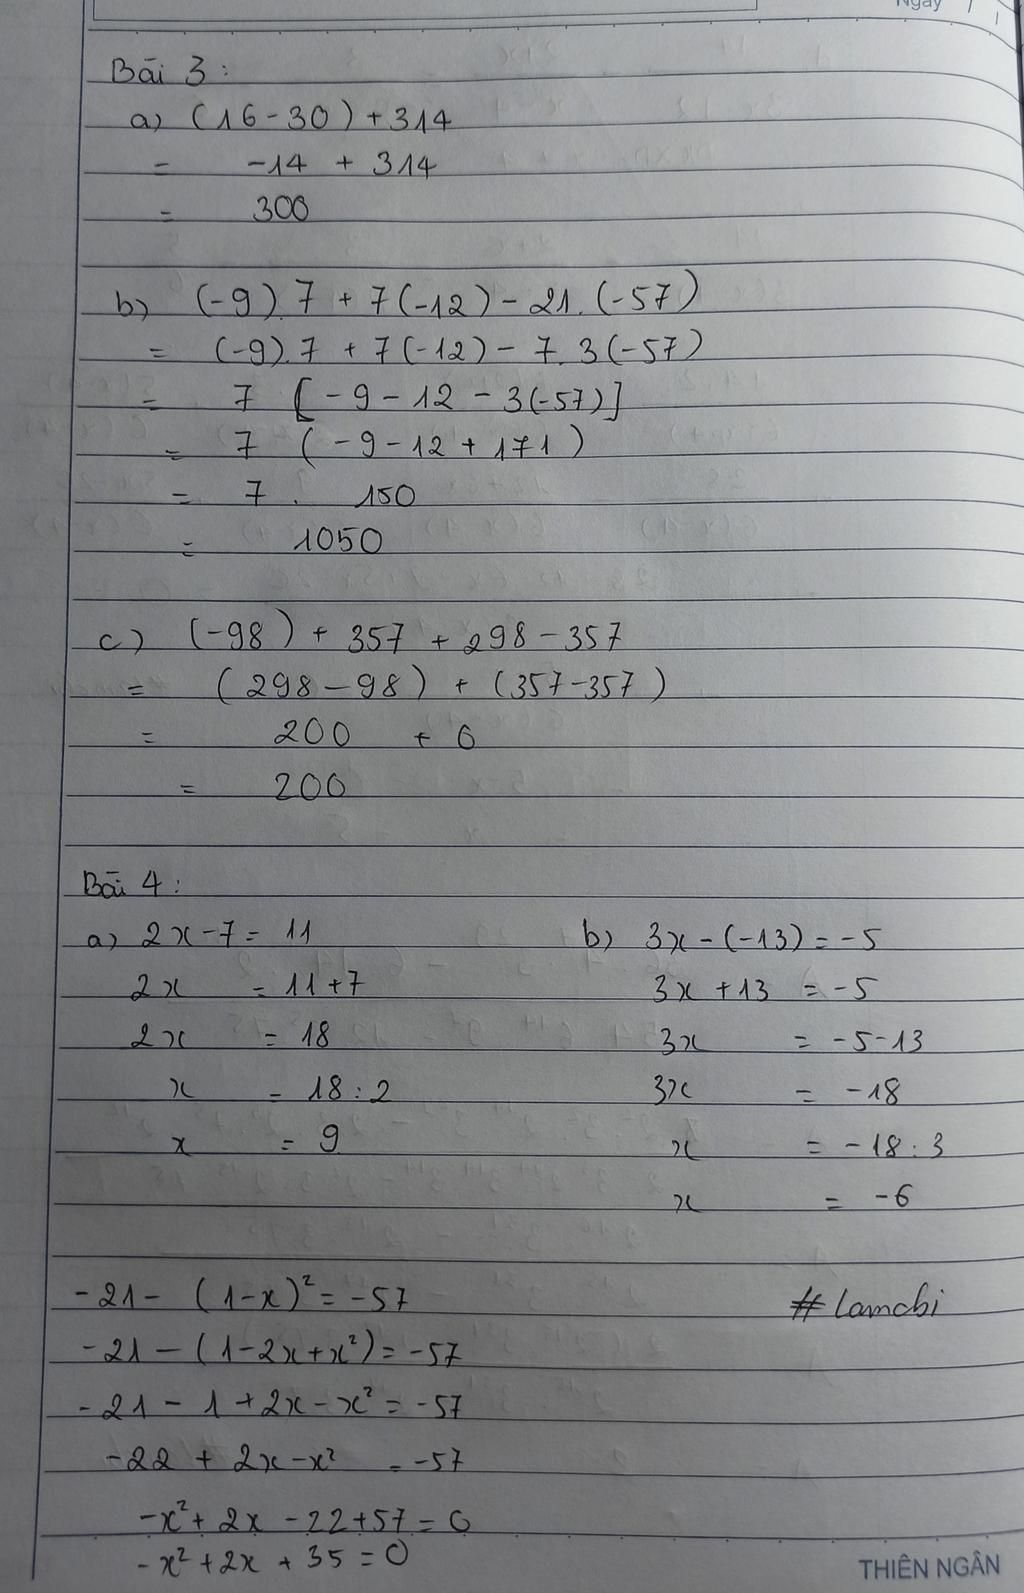 Ngày
Bài 3 :
a) (16-30) + 314
= -14 + 314
= 300
b) (-9).7 + 7(-12) - 21.(-57)
= (-9).7 + 7(-12) - 7.3(-57)
= 7 [-9-12-3(-57)]
= 7 (-9-12+171)
= 7 . 150
= 1050
c) (-98) + 357 + 298 - 357
= (298-98) + (357-357)
= 200 + 0
= 200
Bài 4 :
a) 2x-7 = 11
2x = 11+7
2x = 18
x = 18 : 2
x = 9
b) 3x - (-13) = -5
3x + 13 = -5
3x = -5-13
3x = -18
x = -18 : 3
x = -6
-21 - (1-x)² = -57
-21 - (1-2x+x²) = -57
-21 - 1 + 2x - x² = -57
-22 + 2x - x² = -57
-x² + 2x - 22 + 57 = 0
-x² + 2x + 35 = 0
# lamchi
THIÊN NGÂN